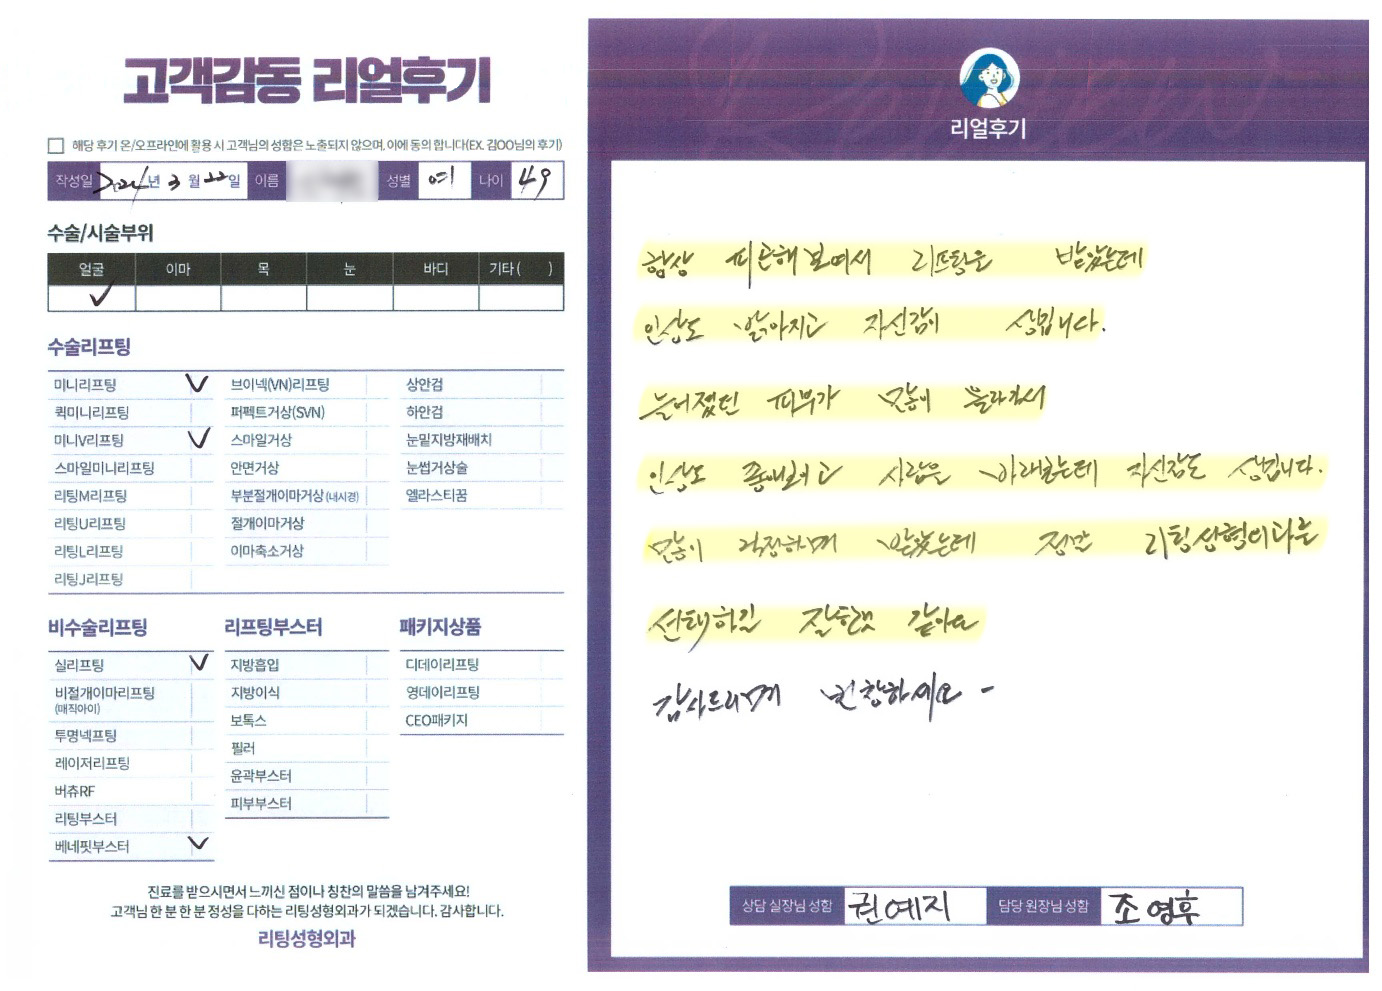 고객감동 리얼후기
해당 후기 온/오프라인에 활용 시 고객님의 성함은 노출되지 않으며, 이에 동의 합니다(EX. 김OO님의 후기)
작성일 2024년 3월 22일 이름 성별 여 나이 49
수술/시술부위
얼굴 이마 목 눈 바디 기타( )
수술리프팅
미니리프팅
퀵미니리프팅
미니V리프팅
스마일미니리프팅
리팅M리프팅
리팅U리프팅
리팅L리프팅
리팅J리프팅
브이넥(VN)리프팅
퍼펙트거상(SVN)
스마일거상
안면거상
부분절개이마거상(내시경)
절개이마거상
이마축소거상
상안검
하안검
눈밑지방재배치
눈썹거상술
엘라스티꿈
비수술리프팅
실리프팅
비절개이마리프팅
(매직아이)
투명넥프팅
레이저리프팅
버츄RF
리팅부스터
베네핏부스터
리프팅부스터
지방흡입
지방이식
보톡스
필러
윤곽부스터
피부부스터
패키지상품
디데이리프팅
영데이리프팅
CEO패키지
진료를 받으시면서 느끼신 점이나 칭찬의 말씀을 남겨주세요!
고객님 한 분 한 분 정성을 다하는 리팅성형외과가 되겠습니다. 감사합니다.
리팅성형외과
리얼후기
항상 피곤해보여서 리프팅을 받았는데
인상도 밝아지고 자신감이 생깁니다.
늘어졌던 피부가 많이 올라가서
인상도 좋아보이고 사람은 자신감도 생깁니다.
많이 걱정하며 왔는데 정말 리팅성형이다를
선택하길 잘한것 같아요
감사드리며 번창하세요 -
상담 실장님 성함 권예지 담당 원장님 성함 조영후